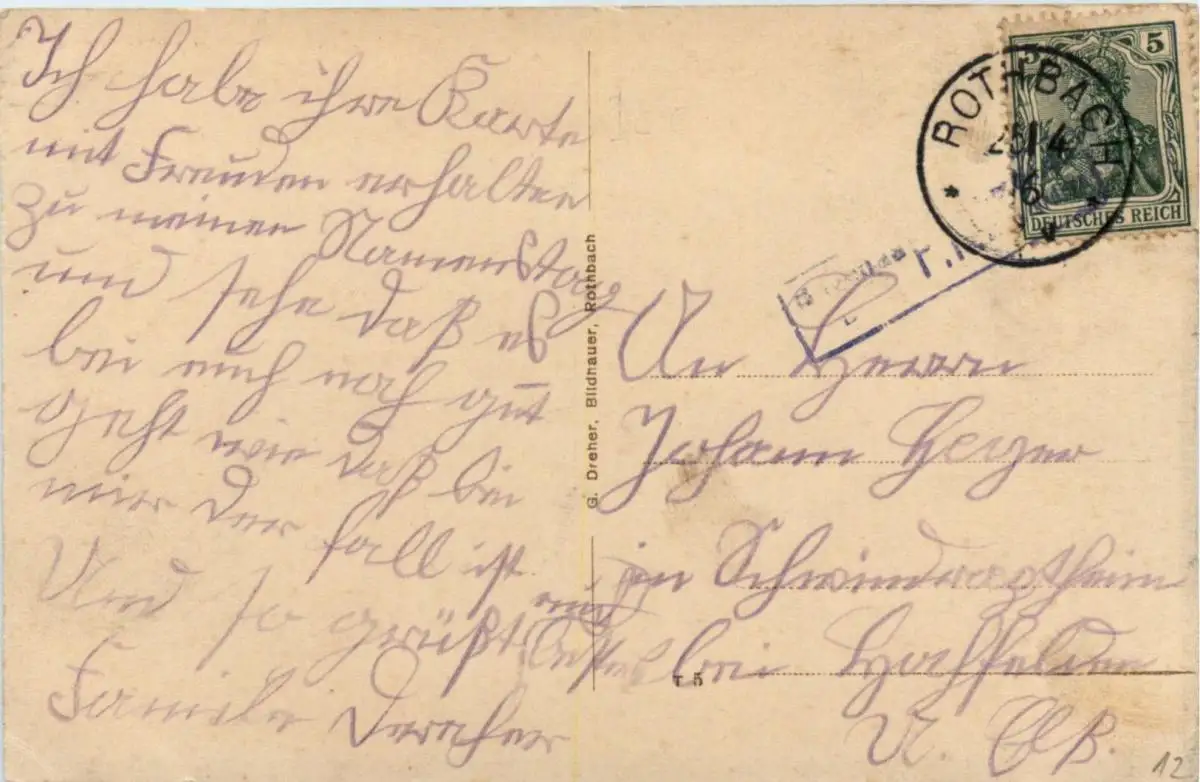 Ich habe ihre Karte
mit Freuden erhalten
zu meinen Namenstag
und sehe daß es
bei euch noch gut
geht wie daß bei
mir der fall ist
Und so grüßt euch
bestens
Familie Dreher
G. Dreher, Bildhauer, Rothbach
T 5
ROTHBACH
5
5
DEUTSCHES REICH
An Herrn
Johann Heyer
in Schwindratzheim
bei Hochfelden
U. Elß.
12